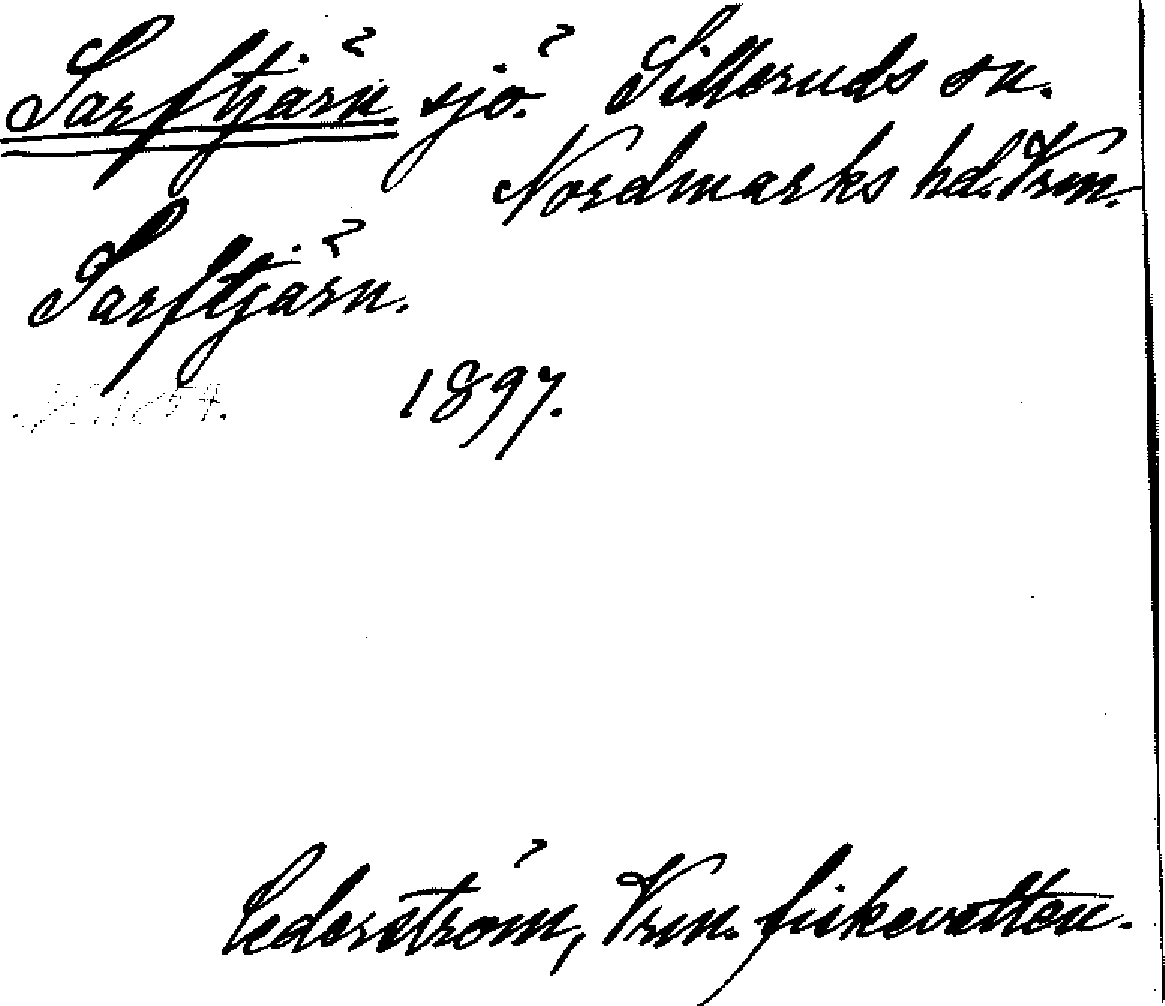 Sarftjärn. sjö. Silleruds sn.
Nordmarks hd. Vrm.
Sarftjärn.
1897.
Cederström, Vrm. fiskevatten.